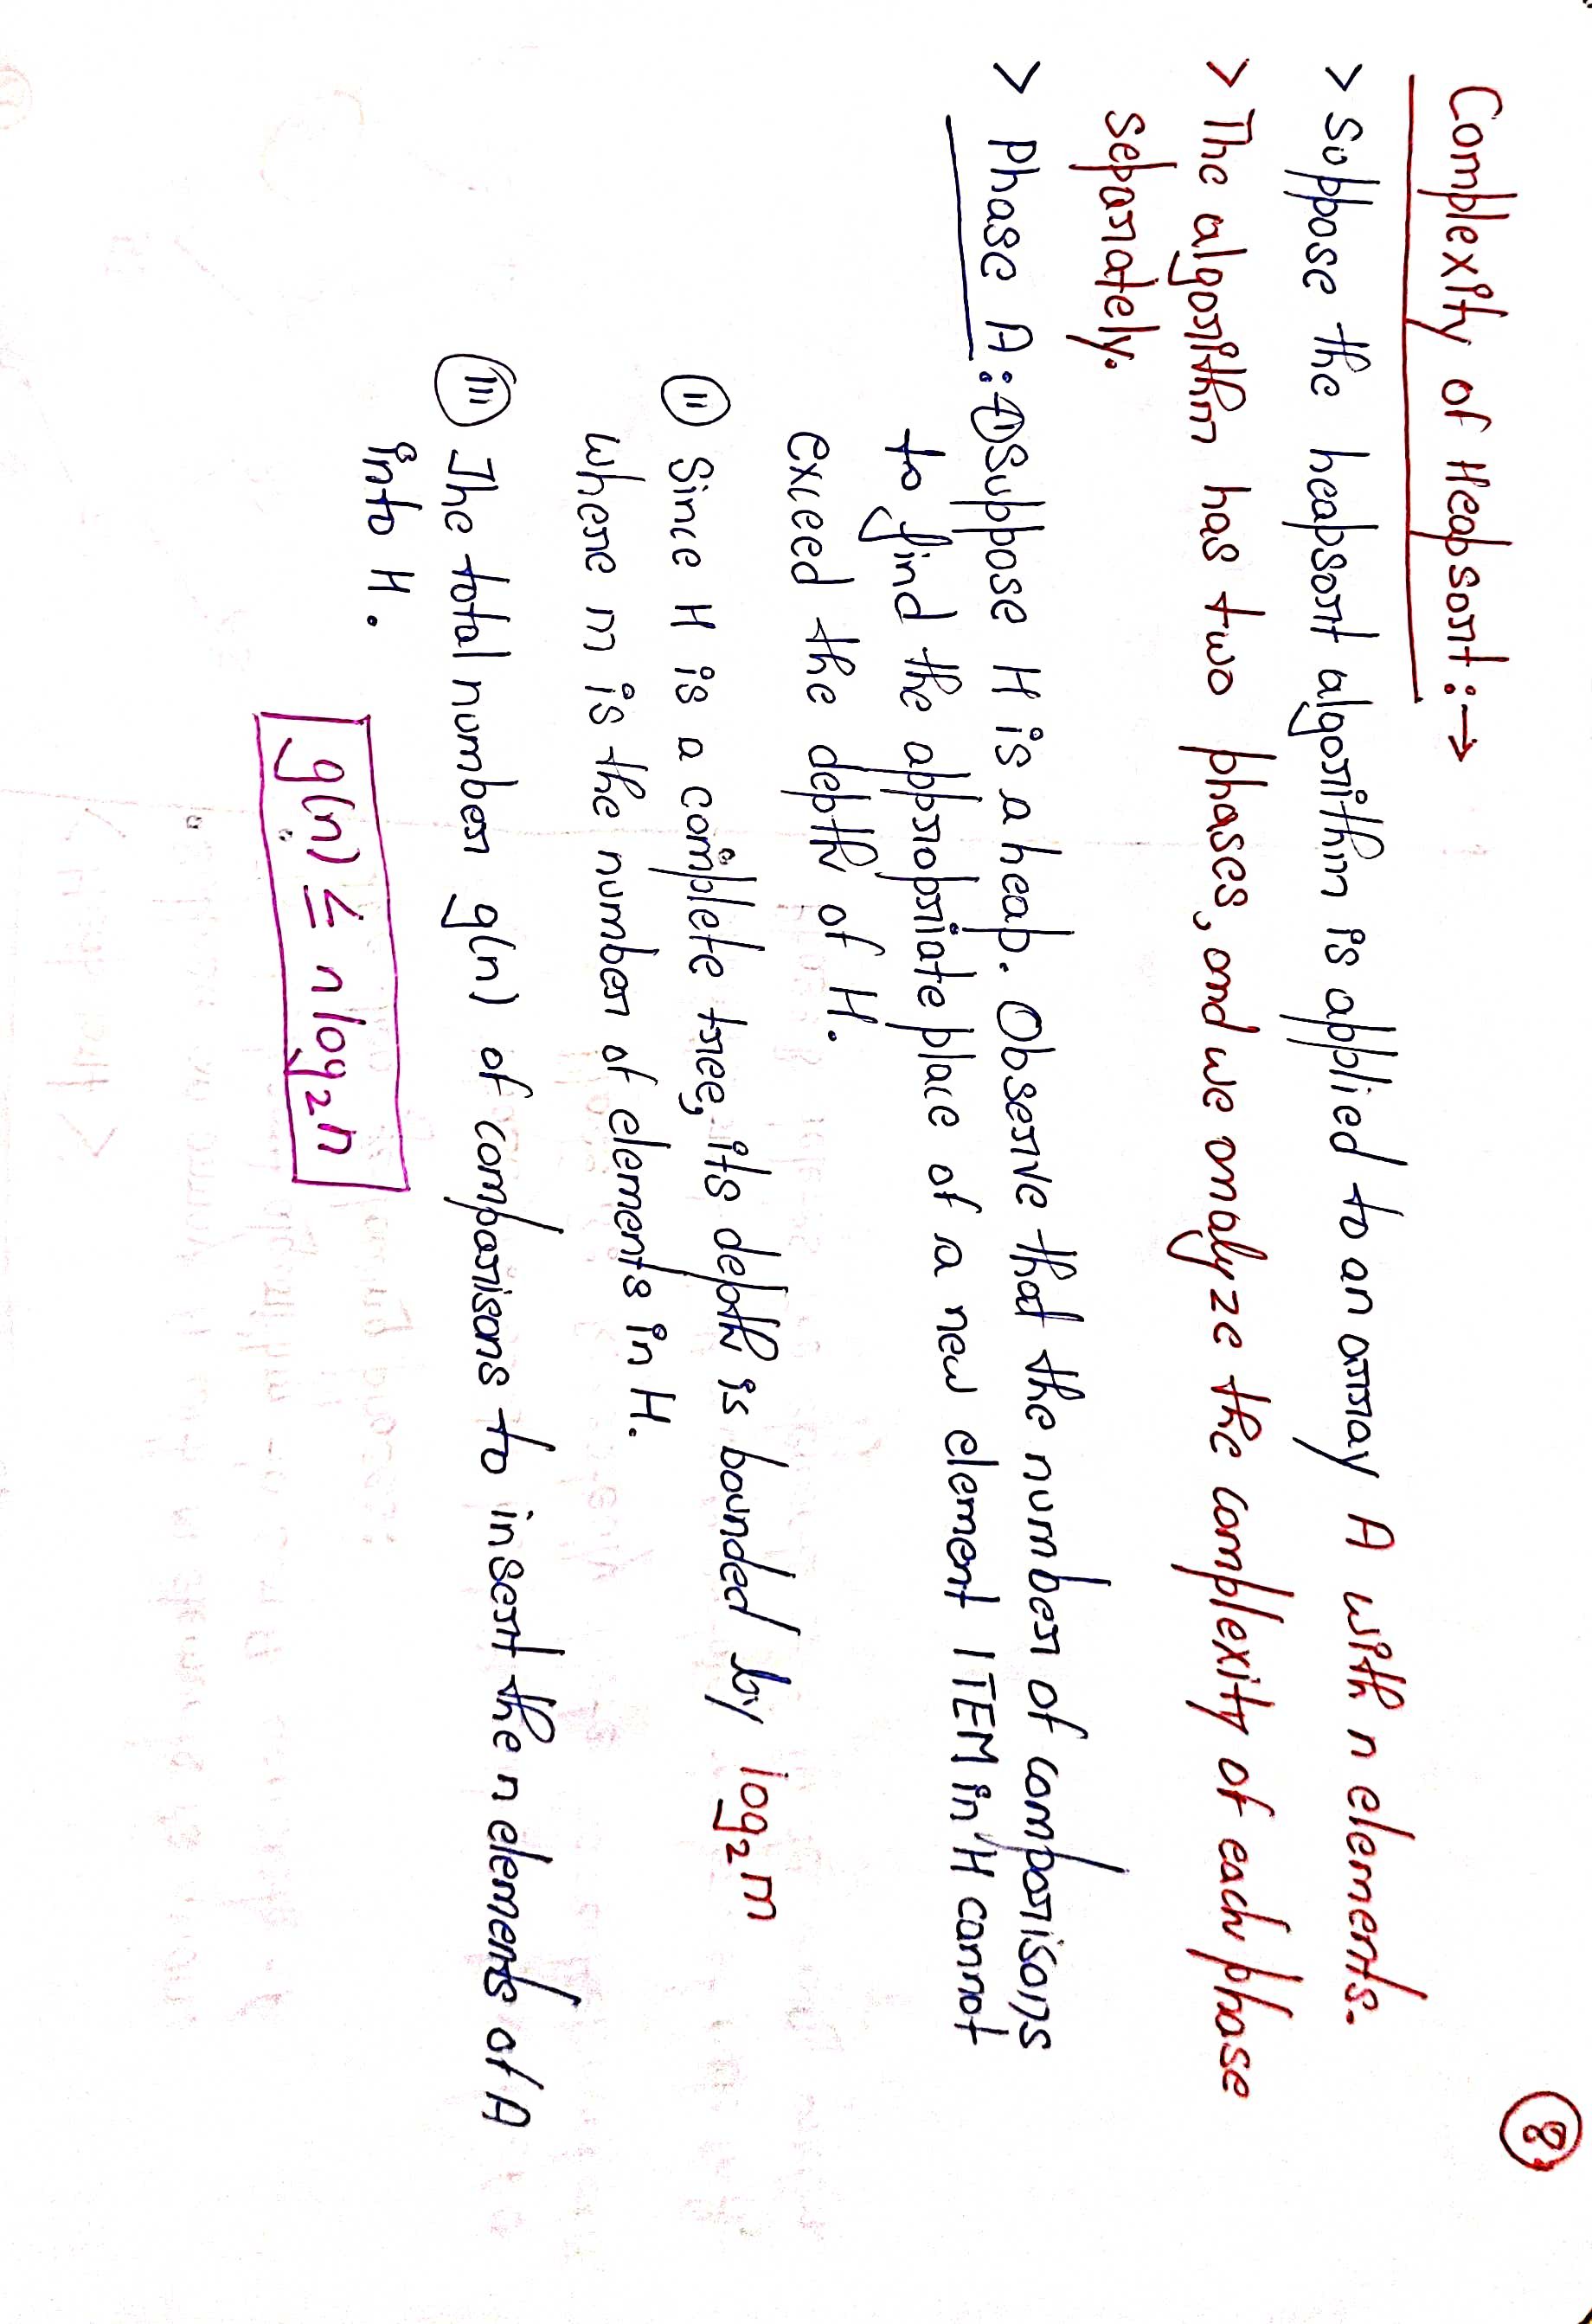 8
Complexity of Heapsort:→
> Suppose the heapsort algorithm is applied to an array A with n elements.
> The algorithm has two phases, and we analyze the complexity of each phase
separately.
> Phase A: ① Suppose H is a heap. Observe that the number of comparisons
to find the appropriate place of a new element ITEM in H cannot
exceed the depth of H.
ⅱ Since H is a complete tree, its depth is bounded by log₂m
where m is the number of elements in H.
ⅲ The total number g(n) of comparisons to insert the n elements of A
into H.
g(n) ≤ n log₂n